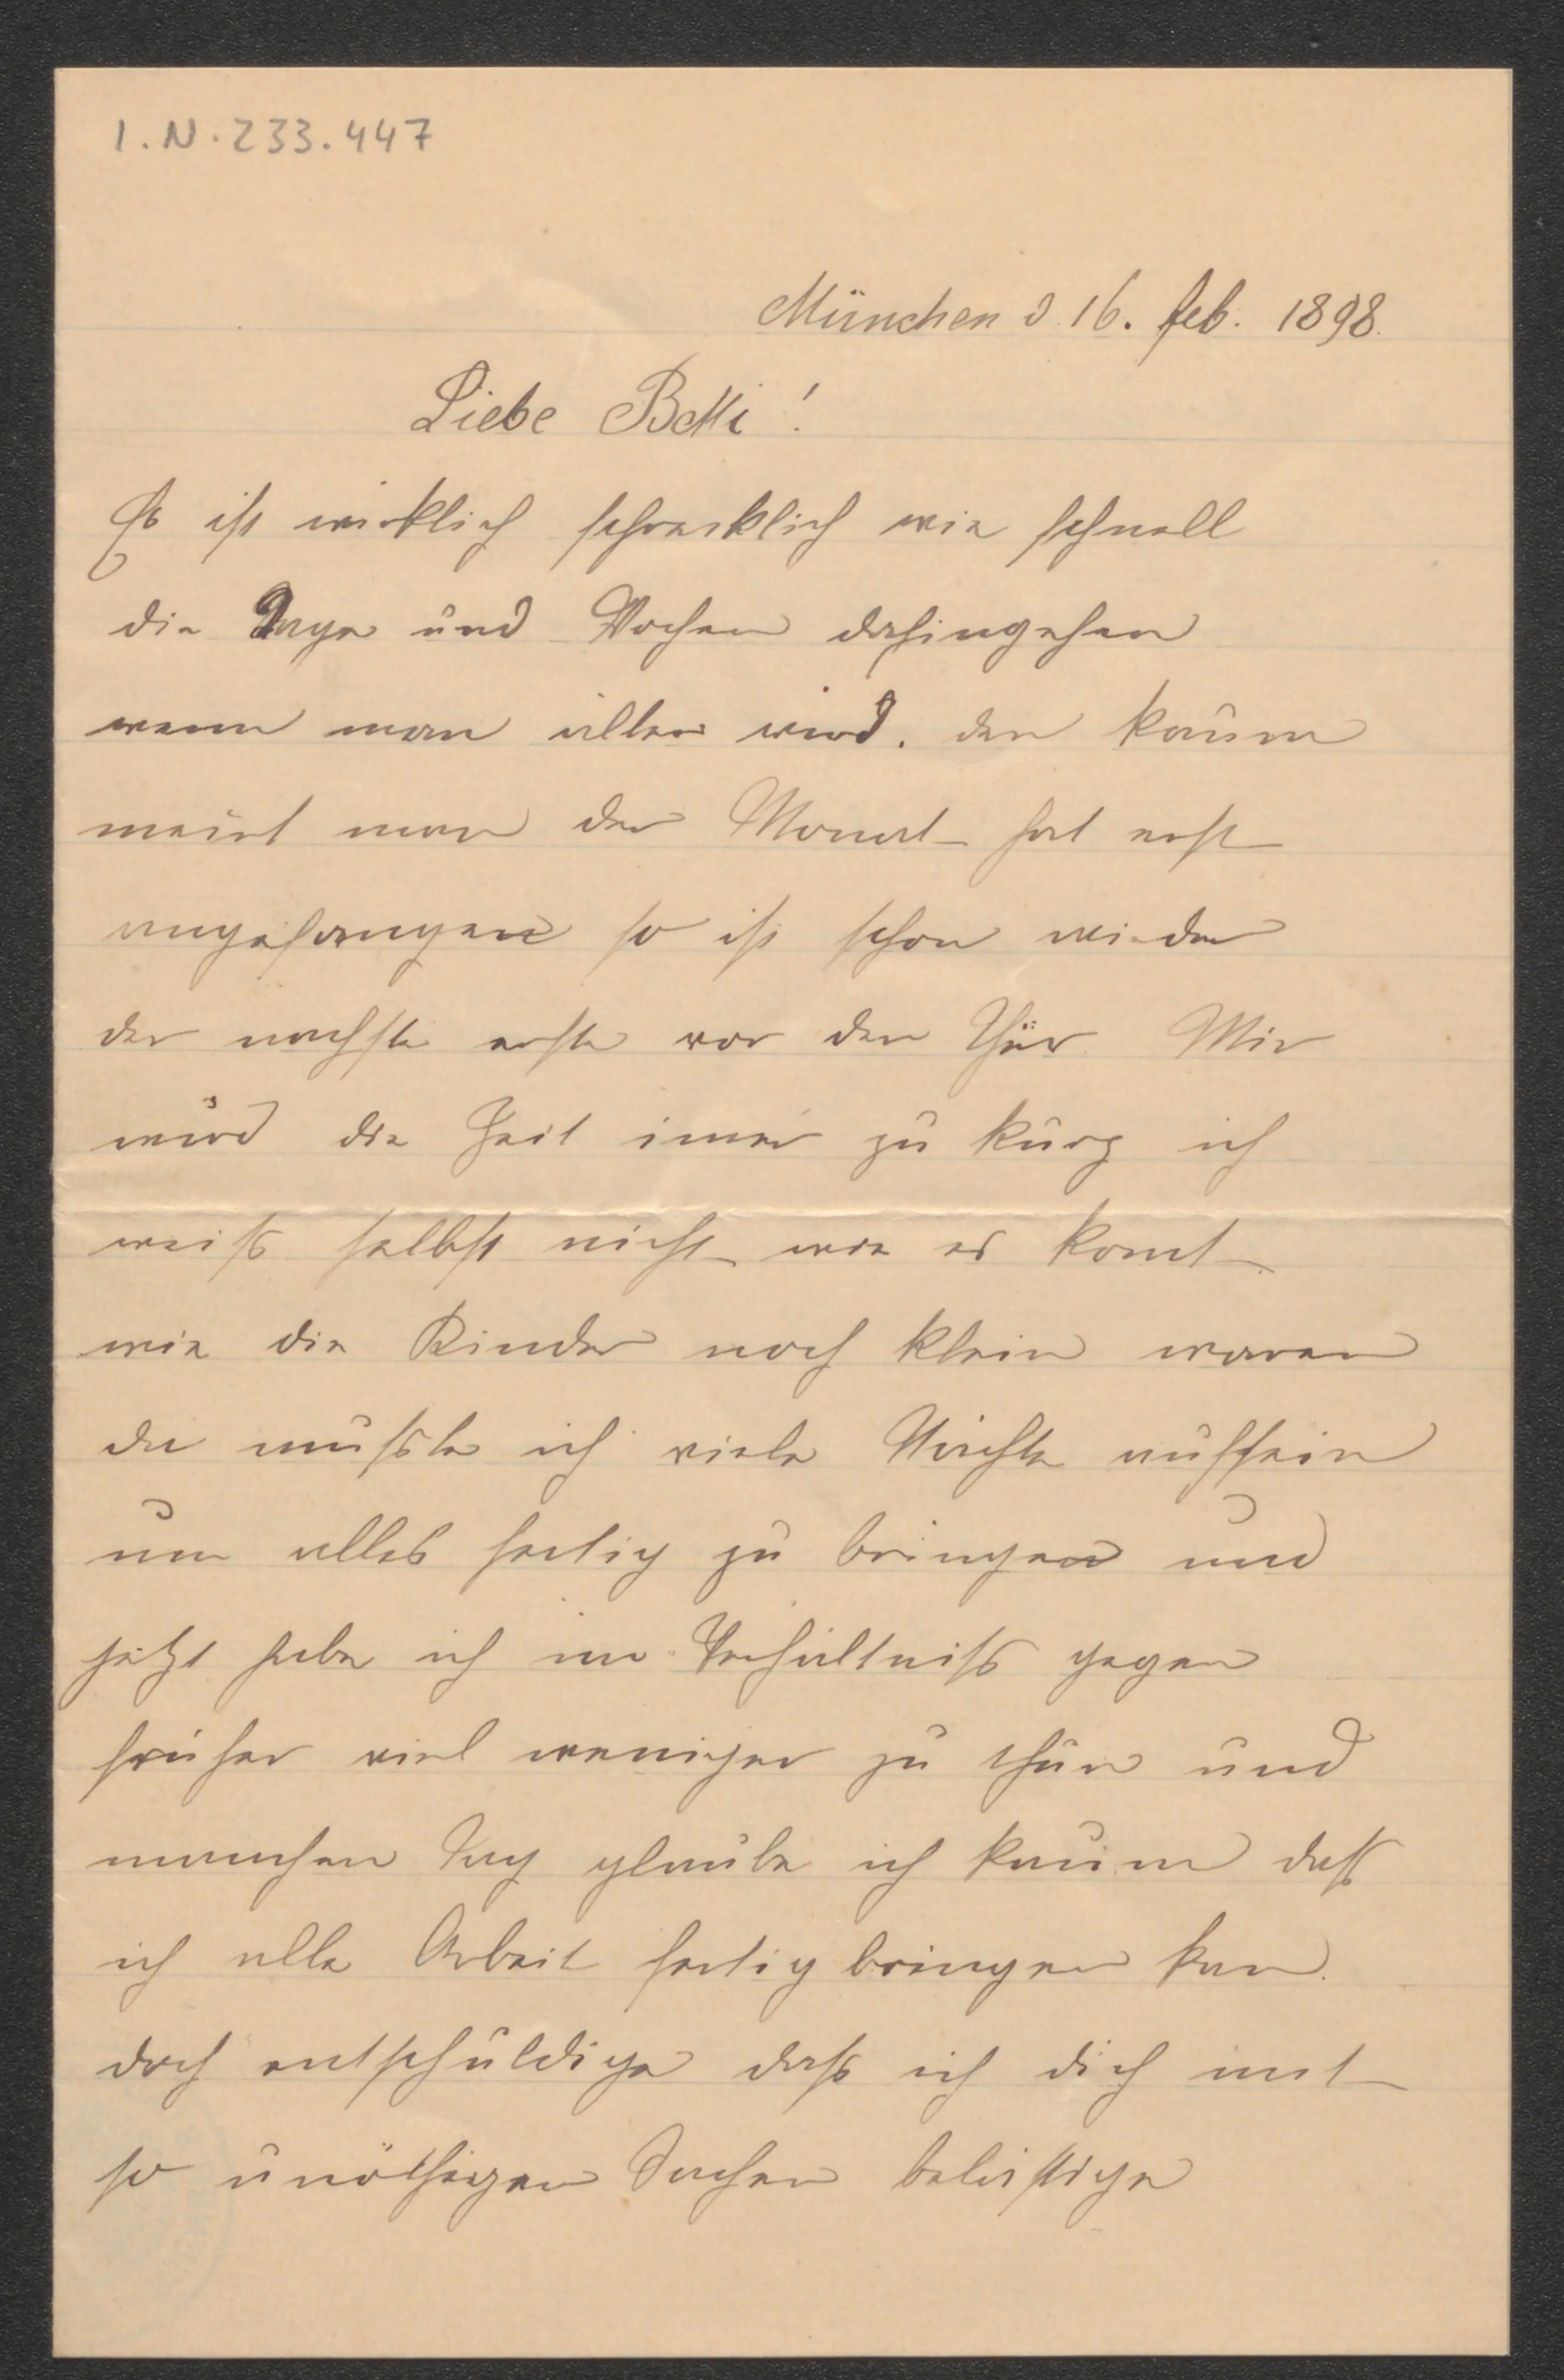 I.N. 233.447
München d 16. feb. 1898.
Liebe Betti!
Es ist wirklich schrecklich wie schnell
die Tage und Wochen dahingehen
wenn man älter wird. den kaum
meint man der Monat hat erst
angefangen so ist schon wieder
der nachste erste vor der Thür. Mir
wird die Zeit imer zu kurz ich
weiß selbst nicht wie es komt
wie die Kinder noch klein waren
da mußte ich viele Nächte aufsein
um alles fertig zu bringen und
jetzt habe ich im Verhältniß gegen
früher viel weniger zu thun und
manchen Tag glaube ich kaum daß
ich alle Arbeit fertig bringen kan.
doch entschuldige daß ich dich mit
so unöthigen Sachen belästige